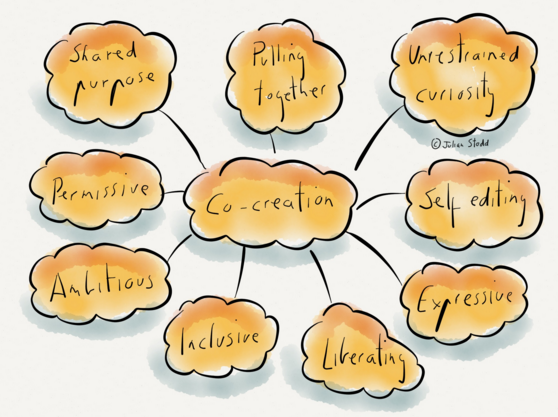 Shared
purpose
Pulling
together
Unrestrained
curiosity
© Julian Stodd
Permissive
Co-creation
Self editing
Ambitious
Expressive
Inclusive
Liberating